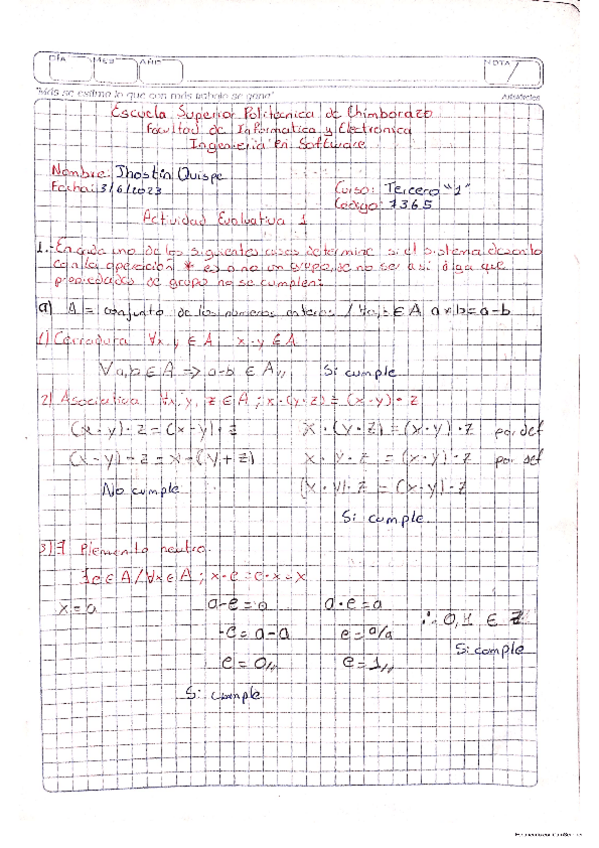 DÍA MES AÑO NOTA
"Más se estima lo que con más trabajo se gana"
Escuela Superior Politécnica de Chimborazo
Facultad de Informatica y Electrónica
Ingeniería en Software
Nombre: Jhostin Quispe
Fecha: 3/6/2023 Curso: Tercero "1"
Codigo: 7365
Actividad Evaluativa 1
1.- En cada uno de los siguientes casos determine si el sistema descrito
con la operación * es o no un grupo, de no ser así diga que
propiedades de grupo no se cumplen:
a) A = conjunto de los números enteros / ∀a, b ∈ A a*b = a-b
1) Cerradura ∀x, y ∈ A x·y ∈ A
∀a,b ∈ A => a-b ∈ A,, Si cumple
2) Asociativa ∀x, y, z ∈ A; x·(y·z) = (x·y)·z
(x·y)·z = (x-y)·z x·(y·z) = (x·y)·z por def
(x-y)-z = x-(y+z) x·y·z = (x·y)·z por def
No cumple (x·y)·z = (x·y)·z
Si cumple
3) ∃ elemento neutro.
∃e ∈ A / ∀x ∈ A; x·e = e·x = x
x = a a-e = a a·e = a
∴ 0,1 ∈ Z
-e = a-a e = a/a
Si cumple
e = 0,, e = 1,,
Si cumple